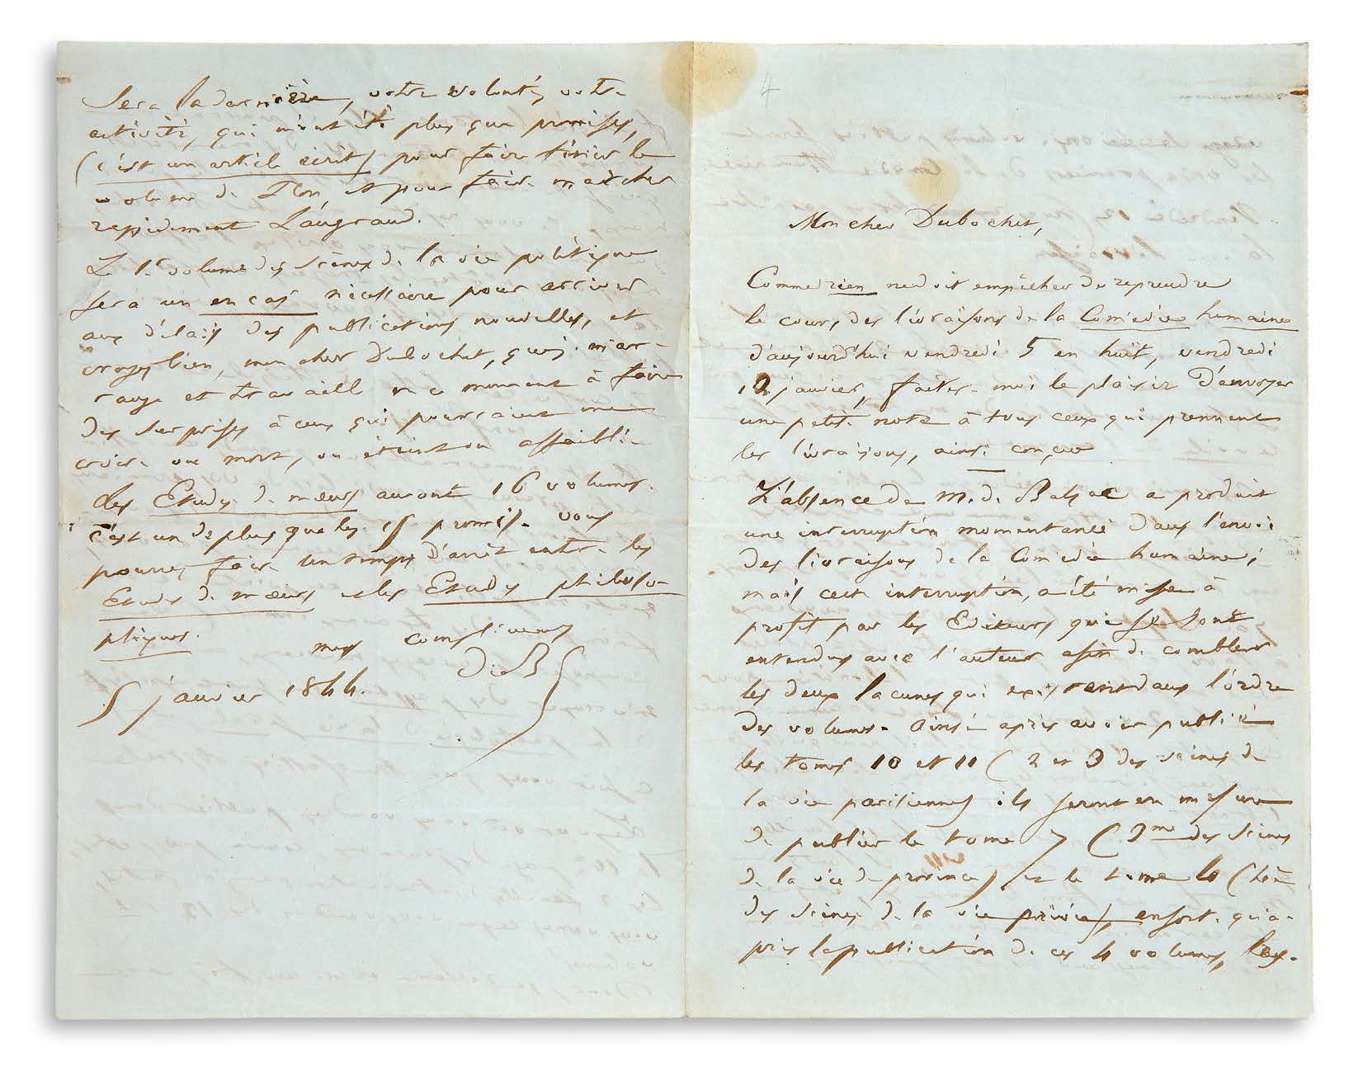 4
Mon cher Dubochet,
Comme rien ne doit empêcher de reprendre
le cours des livraisons de la Comédie humaine
d'aujourd'hui vendredi 5 en huit, vendredi
12 janvier, faites-moi le plaisir d'envoyer
une petite note à tous ceux qui prennent
les livraisons, ainsi conçue
L'absence de M. de Balzac a produit
une interruption momentanée dans l'envoi
des livraisons de la Comédie humaine;
mais cette interruption, a été mise à
profit par les Editeurs qui se sont
entendus avec l'auteur afin de combler
les deux lacunes qui existent dans l'ordre
des volumes. Ainsi après avoir publié
les tomes 10 et 11 (2 et 3 des scènes de
la vie parisienne) ils seront en mesure
de publier le tome 7 (3me des scènes
de la vie de province) et le tome 4 (
des scènes de la vie privée) en sorte qu'a-
près la publication de ces 4 volumes,
sera la dernière, votre volonté, votre
activité, qui m'ont été plus que promises,
(c'est un article écrit) pour faire finir le
volume de et pour faire marcher
rapidement
Le 1r volume des Scènes de la vie politique
sera un en cas nécessaire pour arriver
aux délais des publications nouvelles, et
croyez bien, mon cher Dubochet, que je m'ar-
range et travaille en ce moment à faire
des surprises à ceux qui pourraient me
croire ou mort, ou éteint ou affaibli.
Les Etudes de mœurs auront 16 volumes.
c'est un de plus que les 15 promis. vous
pourrez faire un temps d'arrêt entre les
Etudes de mœurs et les Etudes philoso-
phiques.
mes compliments
De B
5 janvier 1844.